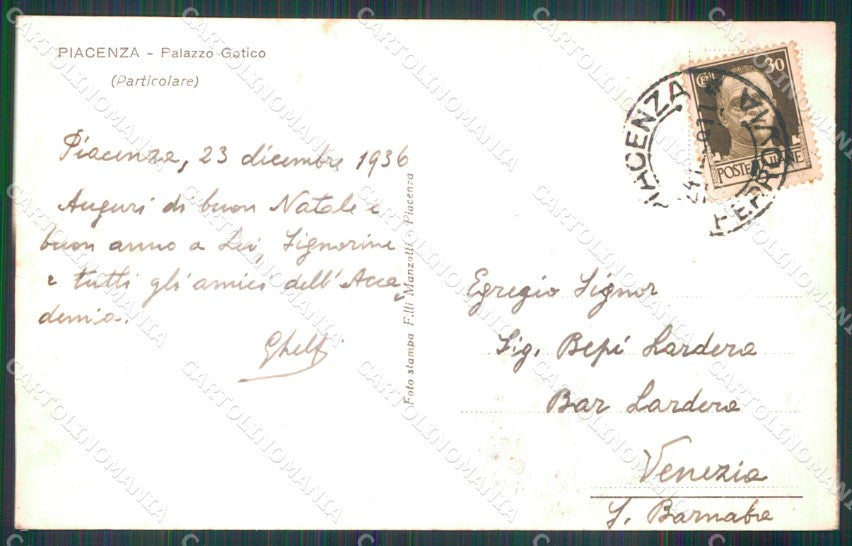 PIACENZA - Palazzo Gotico
(Particolare)
Piacenza, 23 dicembre 1936
Auguri di buon Natale e
buon anno a Lei, Signorine
e tutti gli amici dell'Acca-
demia.
Foto stampa F.lli Manzotti - Piacenza
30
POSTE ITALIANE
PIACENZA
FERROVIA
Egregio Signor
Sig. Bepi Lardera
Bar Lardera
Venezia
S. Barnaba
CARTOLINOMANIA